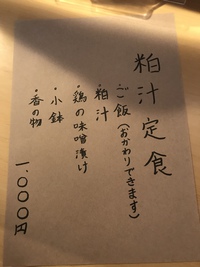 粕汁定食
・ご飯(おかわりできます)
・粕汁
・鶏の味噌漬け
・小鉢
・香の物
一.〇〇〇円